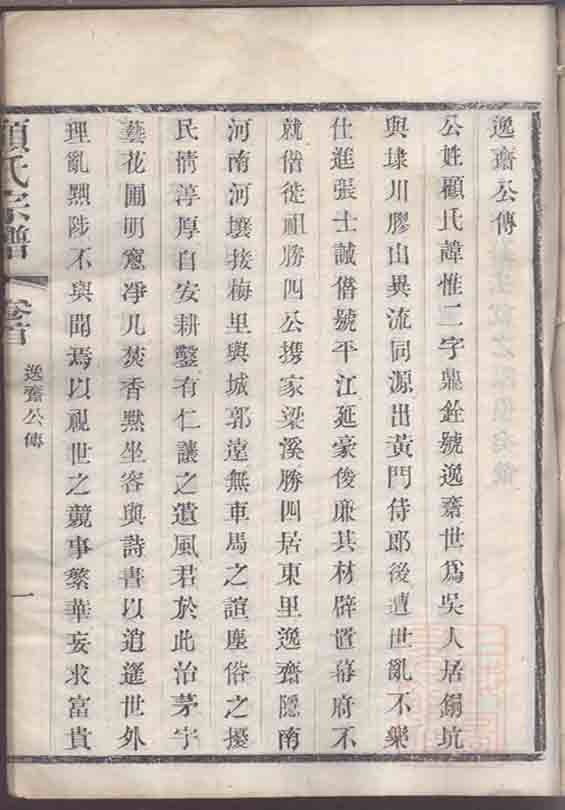 逸齋公傳
公姓顧氏諱惟二字鼎銓號逸齋世爲吳人居銅坑
與埭川膠山異流同源出黃門侍郎後遭世亂不樂
仕進張士誠僭號平江延豪俊廉其材辟置幕府不
就偕從祖勝四公携家梁溪勝四居東里逸齋隱南
河南河壤接梅里與城郭遠無車馬之諠塵俗之擾
民情淳厚自安耕鑿有仁讓之遺風君於此治茅宇
藝花圃明窻凈几焚香默坐容與詩書以逍遙世外
理亂黜陟不與聞焉以視世之競事繁華妄求富貴
顧氏宗譜
卷首
逸齋公傳
一